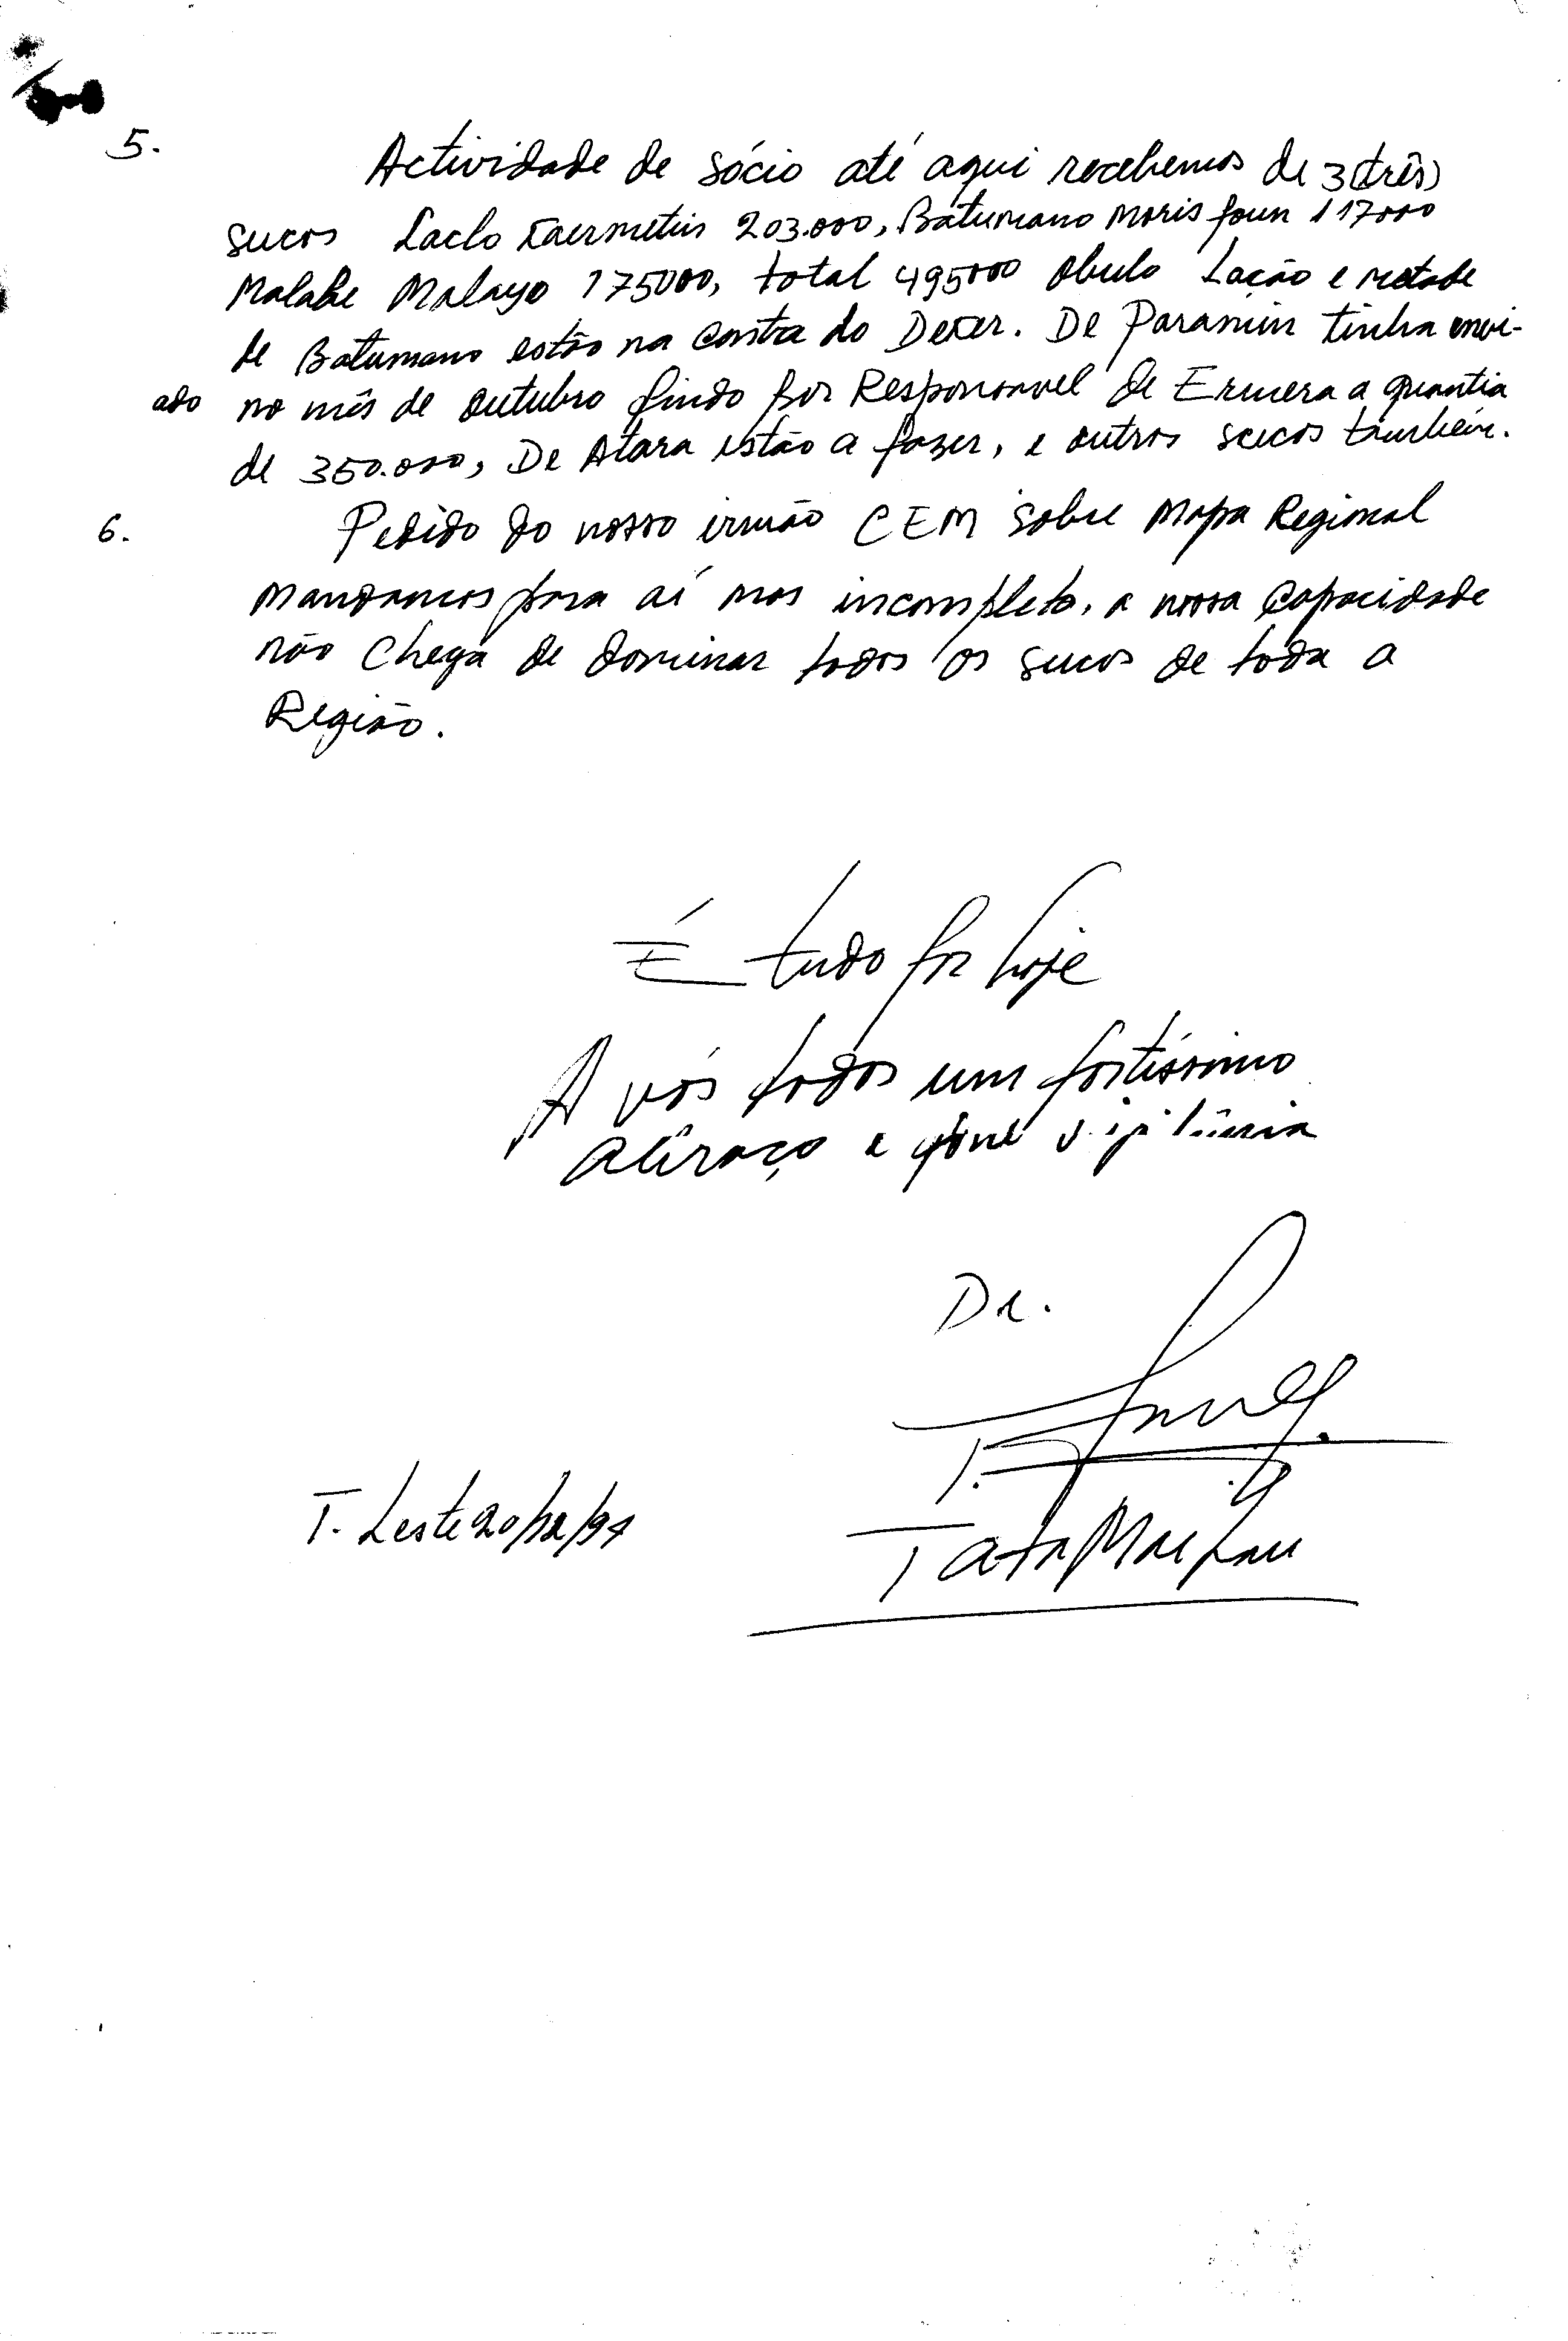 5. Actividade de sócio até aqui recebemos de 3(três)
sucos Laclo Kaermetin 203.000, Batumano Moris foun 117000
Malabe Malayo 175000, total 495000 Obulo Lação e metade
de Batumano estão na conta do Deker. De Paramin tinha envi-
ado no mês de Outubro findo por Responsavel de Ermera a quantia
de 350.000, De Atara estão a fazer, e outros sucos também.
6. Pedido do nosso irmão CEM sobre Mapa Regional
mandamos para aí mas incompleto, a nossa capacidade
não chega de dominar todos os sucos de toda a
Região.
É tudo por hoje
A vós todos um fortíssimo
abraço e vigilância
De.
T. Leste 20/12/94
Tata Mailau